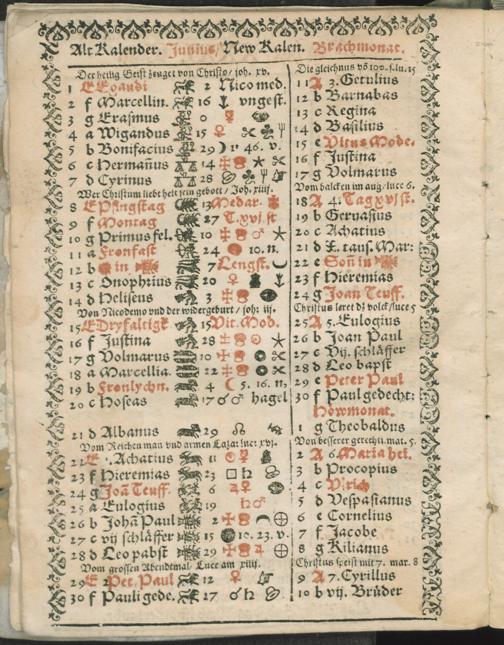 Alt Kalender. Junius/ New Kalen. Brachmonat.
Der heilig Geist zeuget von Christo/ joh. xv.
1 E Exaudi 2 Nicomed.
2 f Marcellin. 16 vngest.
3 g Erasmus 0
4 a Wigandus 15
5 b Bonifacius 29 1 46. v.
6 c Hermañus 14
7 d Cyrinus 28
Wer Christum liebt helt sein gebott/ Joh. xiiij.
8 E Pfingstag 13 Medar.
9 f Montag 27 T. xvj st
10 g Primus fel. 10
11 a Fronfast 24 10. n.
12 b in 7 Lengst.
13 c Onophrius 20
14 d Heliseus 3
Von Nicodemo vnd der widergeburt/ joh: iij.
15 E Dryfaltigk 15 Vit. Mod.
16 f Justina 28
17 g Volmarus 10
18 a Marcellia. 22
19 b Fronlychn. 4 5. 16. n.
20 c Hoseas 17 hagel
21 d Albanus 29
Vom Reichen man vnd armen Lazar luce xvj.
22 E Achatius 11
23 f Hieremias 23
24 g Joã Teuff. 6
25 a Eulogius 19
26 b Johã Paul 2
27 c vij schläffer 15 10. 23. v.
28 d Leo pabst 29
Vom grossen Abendtmal/ Luce am xiiij.
29 E Pet. Paul 12
30 f Pauli gede. 27
Die gleichnus võ 100. s. lu. 15
11 A 3. Gerulius
12 b Barnabas
13 c Regina
14 d Basilius
15 e Vitus Mode.
16 f Justina
17 g Volmarus
Vom balcken im aug/ luce 6.
18 A 4. Tag xvj st.
19 b Geruasius
20 c Achatius
21 d X. taus. Mar:
22 e Son in
23 f Hieremias
24 g Joan Teuff.
Christus leret dz volck/ luce 5
25 A 5. Eulogius
26 b Joan Paul
27 c Vij. schläffer
28 d Leo bapst
29 e Peter Paul
30 f Paul gedecht:
Höwmonat.
1 g Theobaldus
Von besserer gerechti. mat. 5.
2 A 6. Maria hei.
3 b Procopius
4 c Vlrich
5 d Vespasianus
6 e Cornelius
7 f Jacobe
8 g Kilianus
Christus speist mit 7. mar. 8
9 A 7. Cyrillus
10 b vij. Brüder